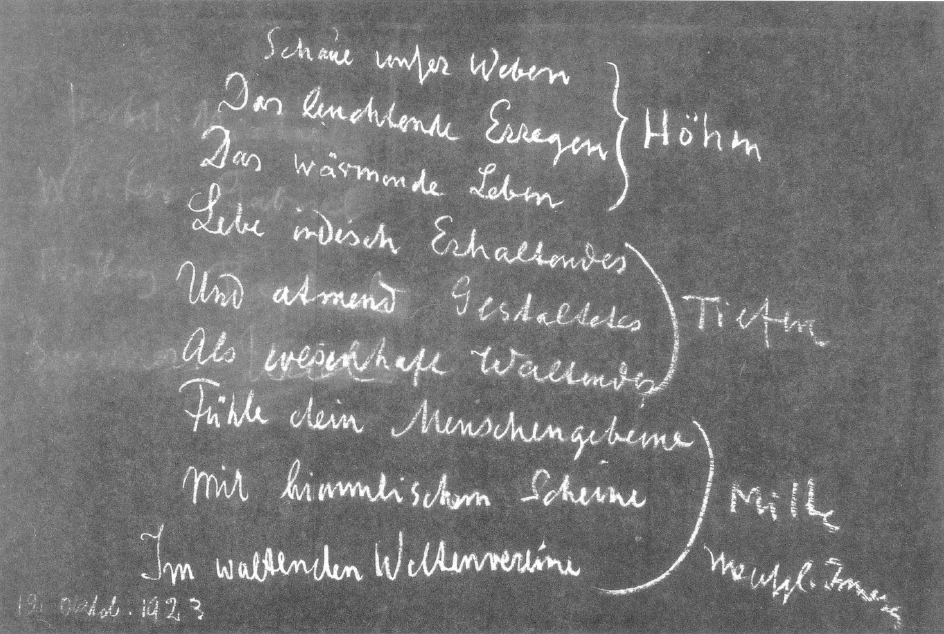 Schaue unser Weben
Das leuchtende Erregen
Das wärmende Leben
Höhen
Lebe irdisch Erhaltendes
Und atmend Gestaltetes
Als wesenhaft Waltendes
Tiefen
Fühle dein Menschengebeine
Mit himmlischem Scheine
Im waltenden Weltenvereine
Mitte
19. Oktob. 1923